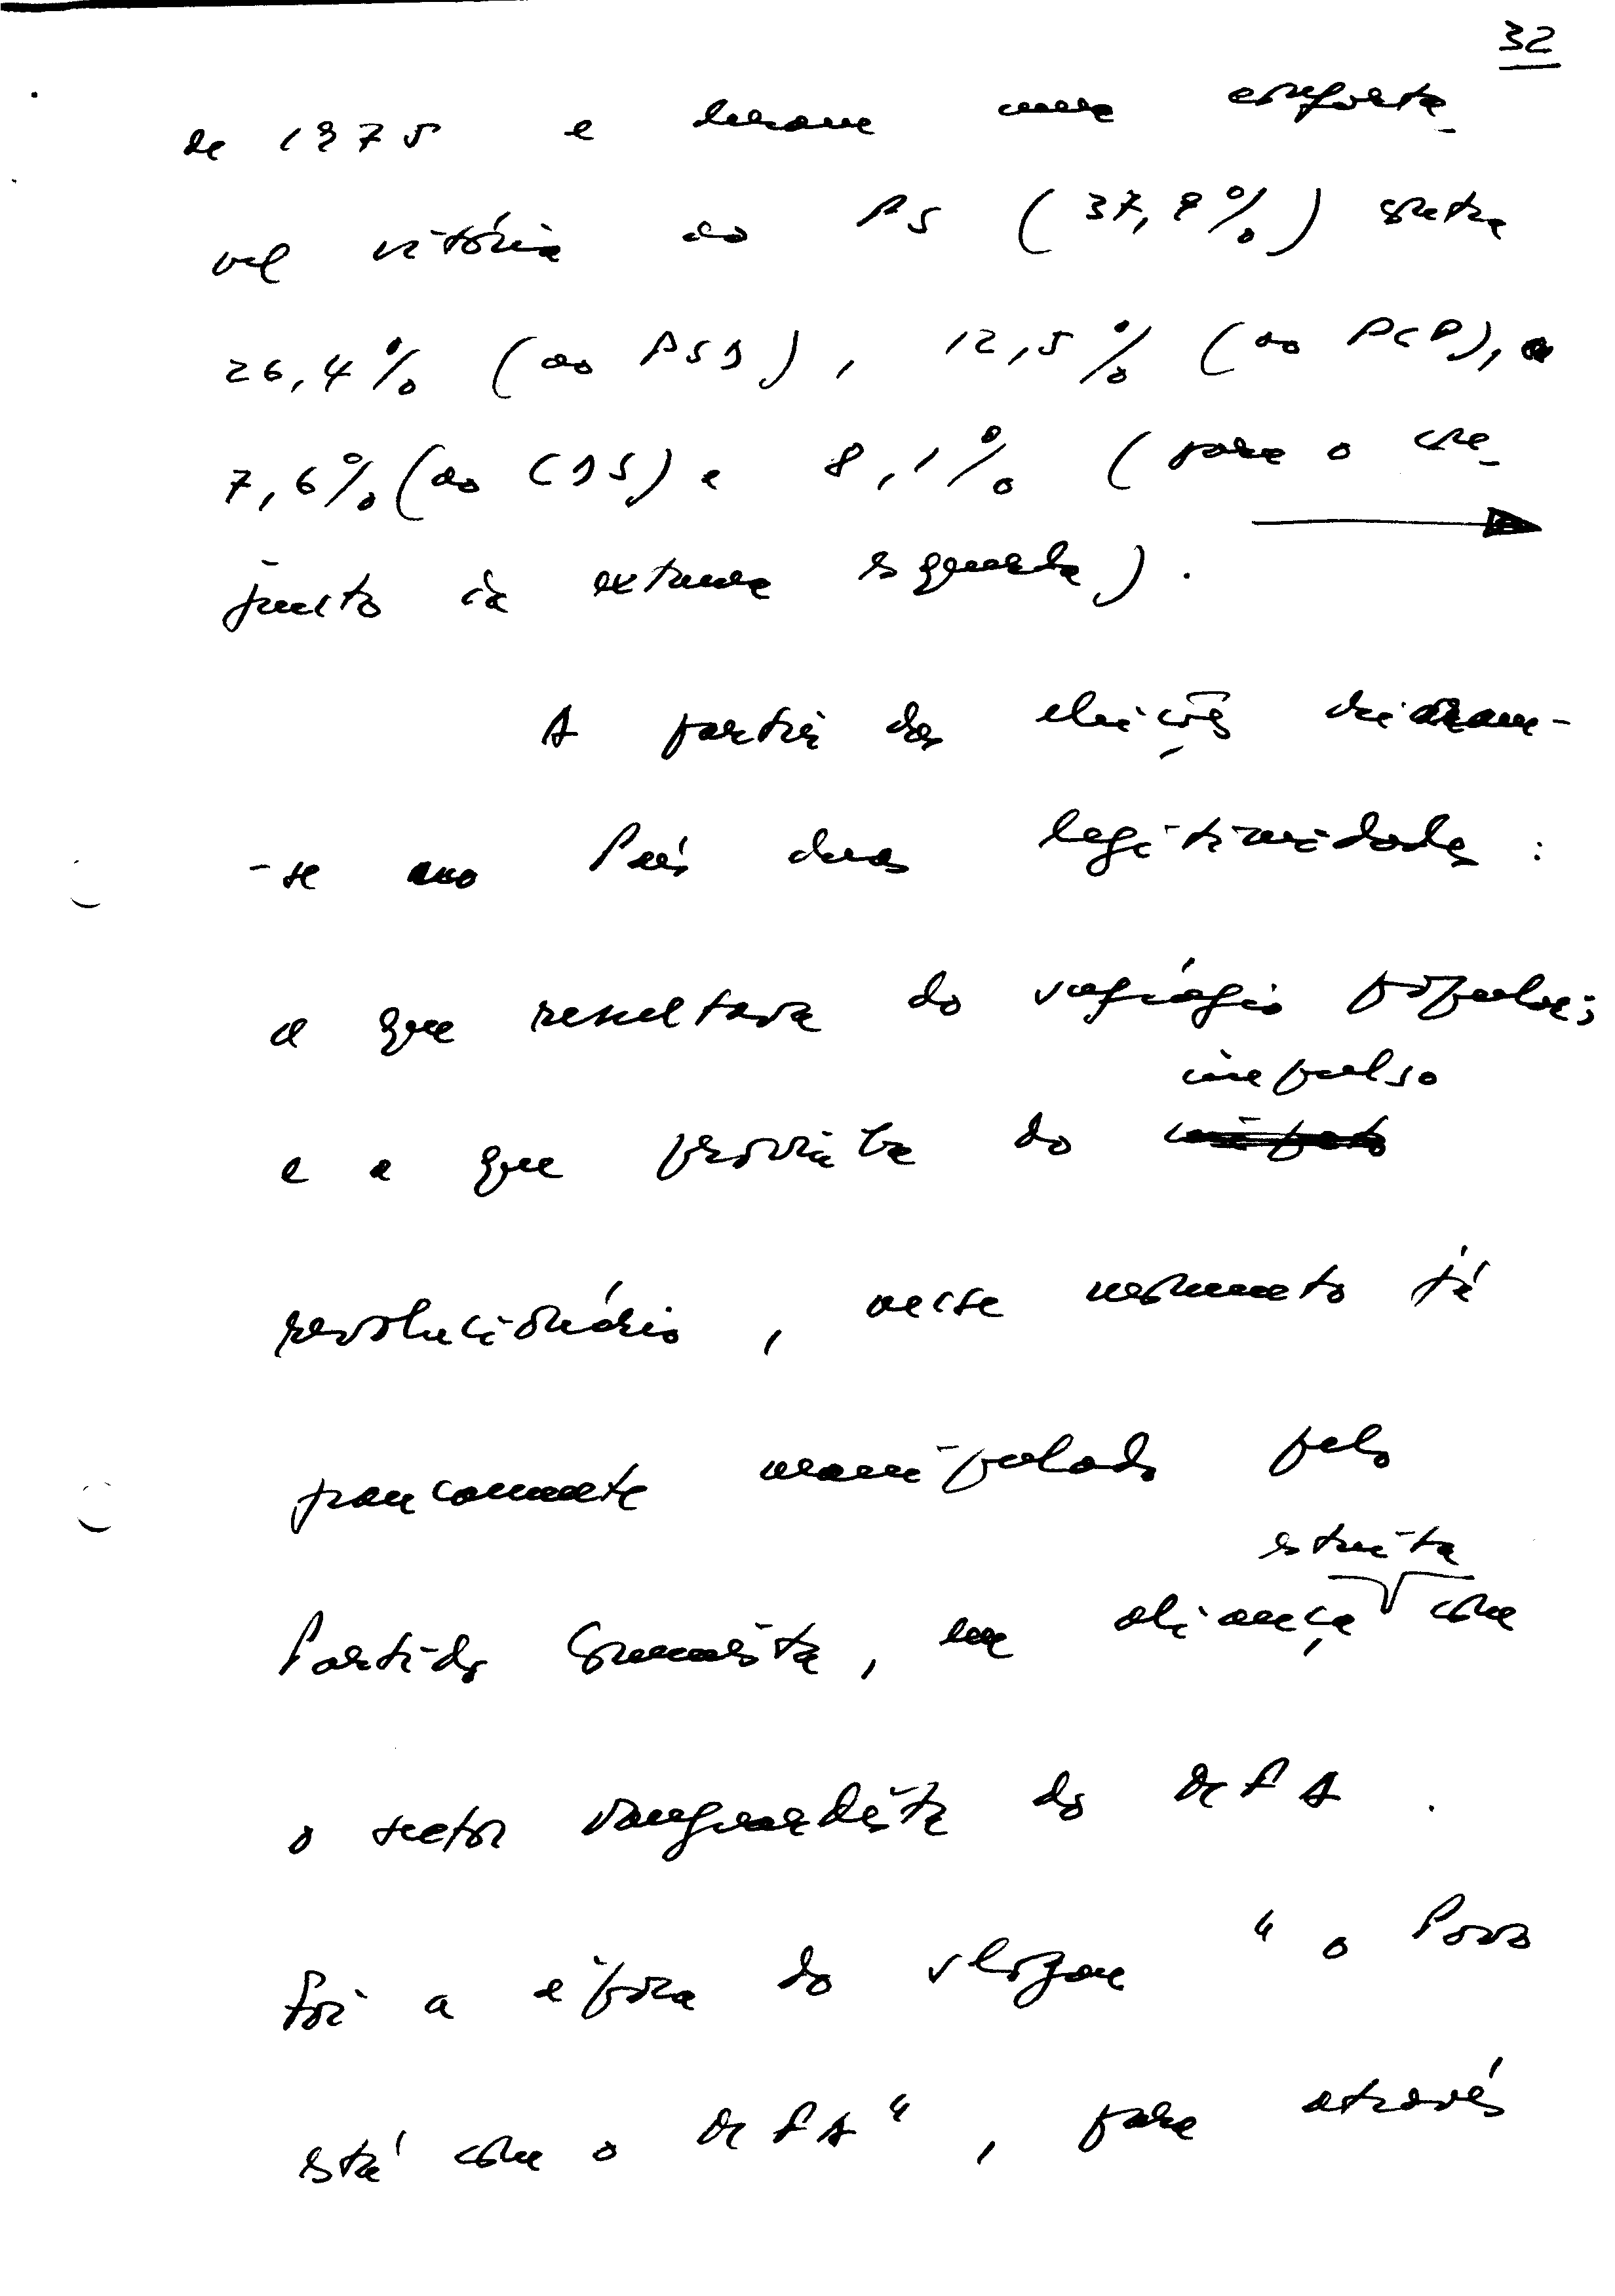 32
de 1975 e deram uma conforta-
vel vitória ao PS (37,9%) contra
26,4% (ao PSD), 12,5% (ao PCP),
7,6% (ao CDS) e 8,1% (para o con-
junto da extrema esquerda).
A partir das eleições criaram-
-se no País duas legitimidades:
a que resultava do sufrágio popular;
impulso
e a que provinha do
revolucionário, nesse momento já
francamente manipulado pelo
estreita
Partido Comunista, em aliança com
o sector vanguardista do MFA.
Foi a época do slogan "o Povo
está com o MFA", para através